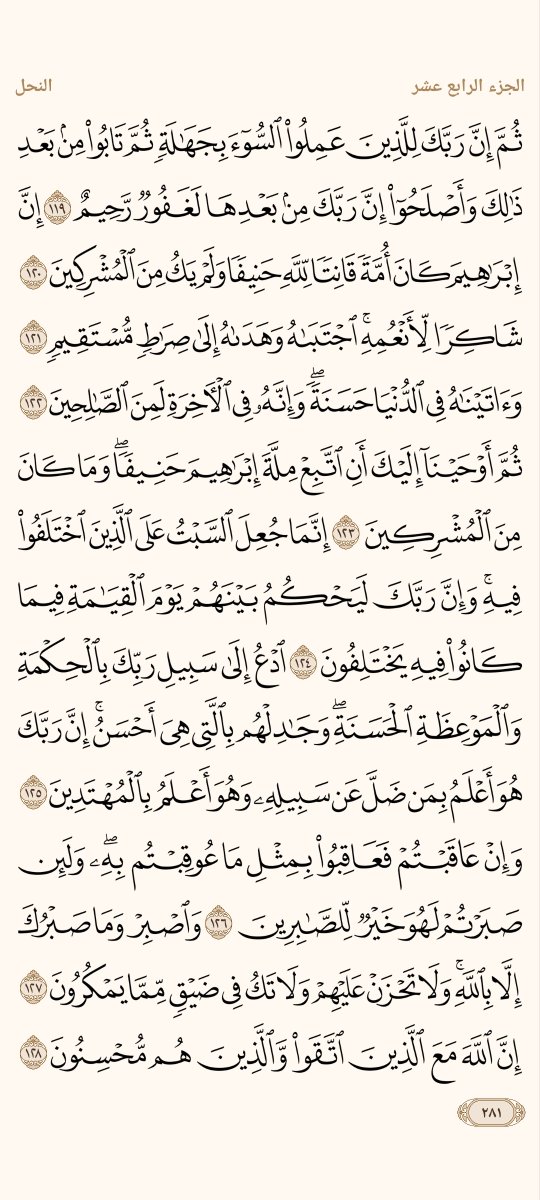 الجزء الرابع عشر
النحل
ثُمَّ إِنَّ رَبَّكَ لِلَّذِينَ عَمِلُوا۟ ٱلسُّوٓءَ بِجَهَـٰلَةٍ ثُمَّ تَابُوا۟ مِنۢ بَعْدِ
ذَٰلِكَ وَأَصْلَحُوٓا۟ إِنَّ رَبَّكَ مِنۢ بَعْدِهَا لَغَفُورٌ رَّحِيمٌ ١١٩ إِنَّ
إِبْرَٰهِيمَ كَانَ أُمَّةً قَانِتًا لِّلَّهِ حَنِيفًا وَلَمْ يَكُ مِنَ ٱلْمُشْرِكِينَ ١٢٠
شَاكِرًا لِّأَنْعُمِهِ ۚ ٱجْتَبَىٰهُ وَهَدَىٰهُ إِلَىٰ صِرَٰطٍ مُّسْتَقِيمٍ ١٢١
وَءَاتَيْنَـٰهُ فِى ٱلدُّنْيَا حَسَنَةً ۖ وَإِنَّهُۥ فِى ٱلْـَٔاخِرَةِ لَمِنَ ٱلصَّـٰلِحِينَ ١٢٢
ثُمَّ أَوْحَيْنَآ إِلَيْكَ أَنِ ٱتَّبِعْ مِلَّةَ إِبْرَٰهِيمَ حَنِيفًا ۖ وَمَا كَانَ
مِنَ ٱلْمُشْرِكِينَ ١٢٣ إِنَّمَا جُعِلَ ٱلسَّبْتُ عَلَى ٱلَّذِينَ ٱخْتَلَفُوا۟
فِيهِ ۚ وَإِنَّ رَبَّكَ لَيَحْكُمُ بَيْنَهُمْ يَوْمَ ٱلْقِيَـٰمَةِ فِيمَا
كَانُوا۟ فِيهِ يَخْتَلِفُونَ ١٢٤ ٱدْعُ إِلَىٰ سَبِيلِ رَبِّكَ بِٱلْحِكْمَةِ
وَٱلْمَوْعِظَةِ ٱلْحَسَنَةِ ۖ وَجَـٰدِلْهُم بِٱلَّتِى هِىَ أَحْسَنُ ۚ إِنَّ رَبَّكَ
هُوَ أَعْلَمُ بِمَن ضَلَّ عَن سَبِيلِهِۦ وَهُوَ أَعْلَمُ بِٱلْمُهْتَدِينَ ١٢٥
وَإِنْ عَاقَبْتُمْ فَعَاقِبُوا۟ بِمِثْلِ مَا عُوقِبْتُم بِهِۦ ۖ وَلَئِن
صَبَرْتُمْ لَهُوَ خَيْرٌ لِّلصَّـٰبِرِينَ ١٢٦ وَٱصْبِرْ وَمَا صَبْرُكَ
إِلَّا بِٱللَّهِ ۚ وَلَا تَحْزَنْ عَلَيْهِمْ وَلَا تَكُ فِى ضَيْقٍ مِّمَّا يَمْكُرُونَ ١٢٧
إِنَّ ٱللَّهَ مَعَ ٱلَّذِينَ ٱتَّقَوا۟ وَّٱلَّذِينَ هُم مُّحْسِنُونَ ١٢٨
٢٨١